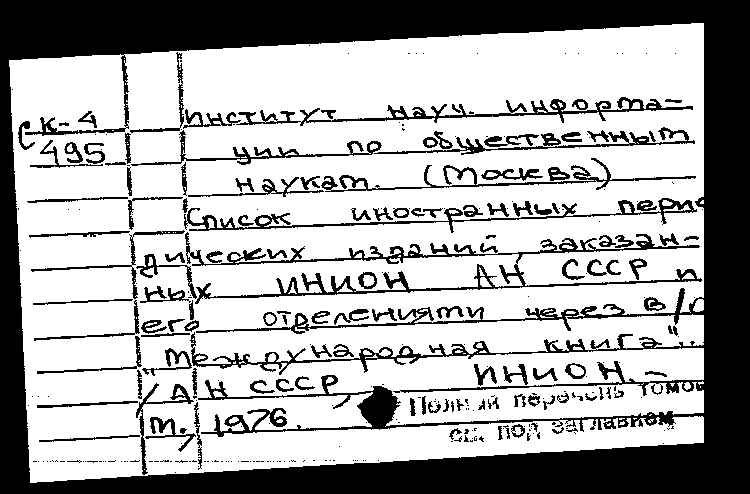 СК-4 Институт науч. информа-
495 ции по общественным
наукам. (Москва)
Список иностранных перио
дических изданий, заказан-
ных ИНИОН АН СССР и
его отделениями через В/О
"Международная книга"..
/АН СССР, ИНИОН. –
М., 1976.
Полный перечень томов
см. под заглавием